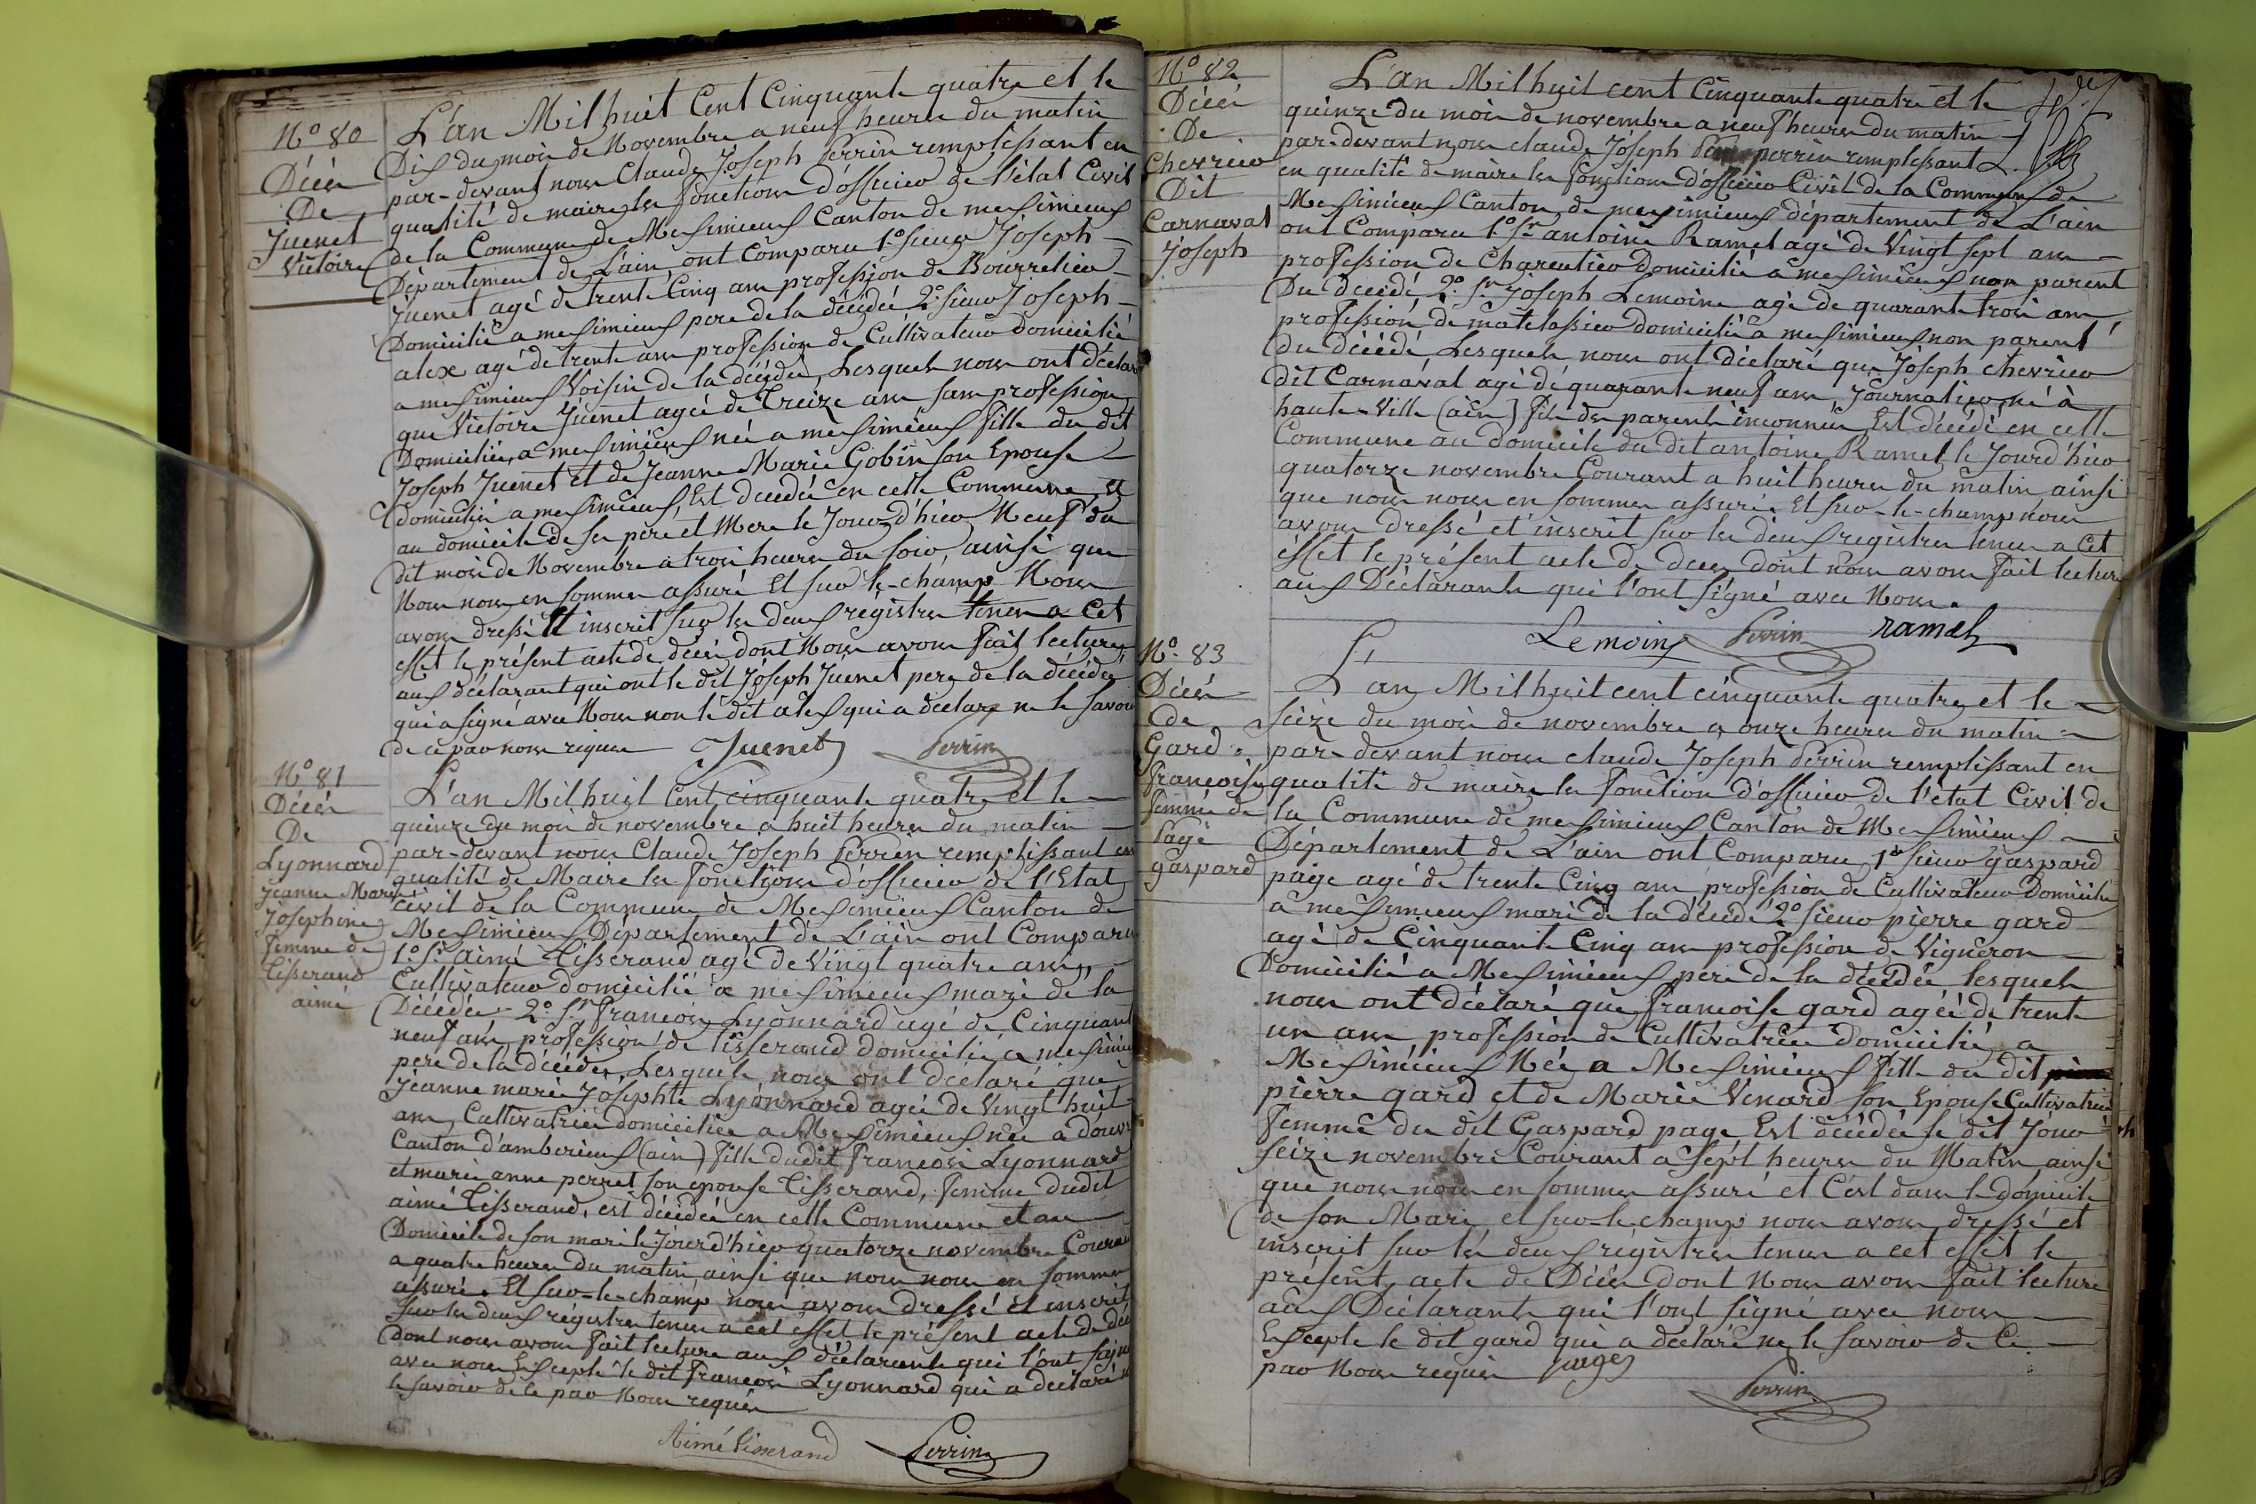 No 80
Décès
De
Juenet
Victoire
L'an Mil huit Cent Cinquante quatre et le
Dix du mois de Novembre a neuf heures du matin
par-devant nous Claude Joseph Perrin remplissant en
qualité de maire les fonctions d'officier de l'état Civil
de la Commune de Meximieux Canton de meximieux
Département de L'ain ont Comparu 1o. sieur Joseph
Juenet agé de trente Cinq ans profession de Bourrelier
Domicilié a meximieux pere de la décédée 2o. sieur Joseph
alex agé de trente ans profession de Cultivateur Domicilié
a meximieux Voisin de la décédée, Lesquels nous ont déclaré
que Victoire Juenet agée de Treize ans sans profession
Domiciliée a meximieux née a meximieux fille du dit
Joseph Juenet Et de Jeanne Marie Gobin son Epouse
domiciliés a meximieux, Est décédée en cette Commune et
au domicile de ses pere et Mere le Jour d'hier Neuf du
dit mois de Novembre a trois heures du soir, ainsi que
Nous nous en sommes assuré Et sur le-champ Nous
avons dressé Et inscrit sur les deux registres tenus a Cet
effet le présent acte de décès dont Nous avons fait lecture
aux déclarant qui ont le dit Joseph Juenet pere de la décédée
qui a signé avec Nous non le dit alex qui a déclaré ne le savoir
de ce par nous requis Juenet Perrin
No 81
Décès
De
Lyonnard
Jeanne Marie
Josephine
femme de
Tisserand
aimé
L'an Mil huit Cent cinquante quatre et le
quinze du mois de novembre a huit heures du matin
par-devant nous Claude Joseph Perrin remplissant en
qualité de Maire les fonctions d'officier de l'Etat
civil de la Commune de Meximieux Canton de
Meximieux Département de L'ain ont Comparu
1o. Sr. aimé Tisserand agé de Vingt quatre ans,
Cultivateur domicilié a meximieux mari de la
Décédée 2o. Sr. francois Lyonnard agé de Cinquante
neuf ans, profession de Tisserand domicilié a meximieux
pere de la décédée, Lesquels nous ont déclaré que
Jeanne marie Josephte Lyonnard agée de Vingt huit
ans, Cultivatrice domiciliée a Meximieux née a douvres
Canton d'amberieux (ain) fille dudit francois Lyonnard
et marie anne perret son epouse Tisserand, femme dudit
aimé Tisserand, est décédée en cette Commune et au
Domicile de son mari le Jour d'hier quatorze novembre Courant
a quatre heures du matin, ainsi que nous nous en sommes
assuré. Et sur-le-champ nous avons dressé et inscrit
sur les deux régistres tenus a cet effet le présent acte de décès
dont nous avons fait lecture aux déclarants qui l'ont signé
avec nous Excepté le dit francois Lyonnard qui a déclaré ne
le savoir de Ce par Nous requis
Aimé Tisserand Perrin
No 82
Décès
De
Chevrier
Dit
Carnaval
Joseph
L'an Mil huit cent Cinquante quatre et le
quinze du mois de novembre a neuf heures du matin
par-devant nous claude Joseph perrin remplissant
en qualité de maire les fonctions d'officier Civil de la Commune de
Meximieux Canton de meximieux département de L'ain
ont Comparu 1o. Sr. antoine Ramel agé de Vingt sept ans
profession de Charcutier Domicilié a meximieux non parent
Du décédé 2o. Sr. Joseph Lemoine agé de quarante trois ans
profession de matelassier domicilié a meximieux non parent
du décédé Lesquels nous ont déclaré que Joseph Chevrier
dit Carnaval agé de quarante neuf ans, Journalier né à
haute-Ville (ain) fils de parents inconnus Est décédé en cette
Commune au domicile du dit antoine Ramel le Jour d'hier
quatorze novembre Courant a huit heures du matin, ainsi
que nous nous en sommes assuré. Et sur-le-champ nous
avons dressé et inscrit sur les deux registres tenus a Cet
effet le présent acte de décès dont nous avons fait lecture
aux Déclarants qui l'ont signé avec Nous.
Lemoine Perrin ramel
No. 83
Décès
de
Gard
francoise
femme de
Page
gaspard
L'an Mil huit cent cinquante quatre et le
seize du mois de novembre a onze heures du matin
par-devant nous claude Joseph Perrin remplissant en
qualité de maire les fonction d'officier de l'état Civil de
la Commune de meximieux Canton de Meximieux
Département de L'ain ont Comparu 1o sieur gaspard
page agé de trente Cinq ans profession de Cultivateur Domicilié
a meximieux mari de la décédé 2o sieur pierre gard
agé de Cinquante Cinq ans profession de Vigneron
Domicilié a Meximieux pere de la décédée lesquels
nous ont déclaré que francoise gard agée de trente
un ans profession de Cultivatrice domicilié a
Meximieux Née a Meximieux fille du dit
pierre gard et de Marie Venard son Epouse Cultivatrice
femme du dit Gaspard page Est décédée le dit Jour
seize novembre Courant a sept heures du Matin ainsi
que nous nous en sommes assuré et C'est dans le domicile
de son Mari et sur-le-champ nous avons dressé et
inscrit sur les deux régistres tenus a cet effet le
présent acte de Décès dont Nous avons fait lecture
aux Déclarants qui l'ont signé avec nous
Excepté le dit gard qui a déclaré ne le savoir de Ce
par Nous requis page
Perrin